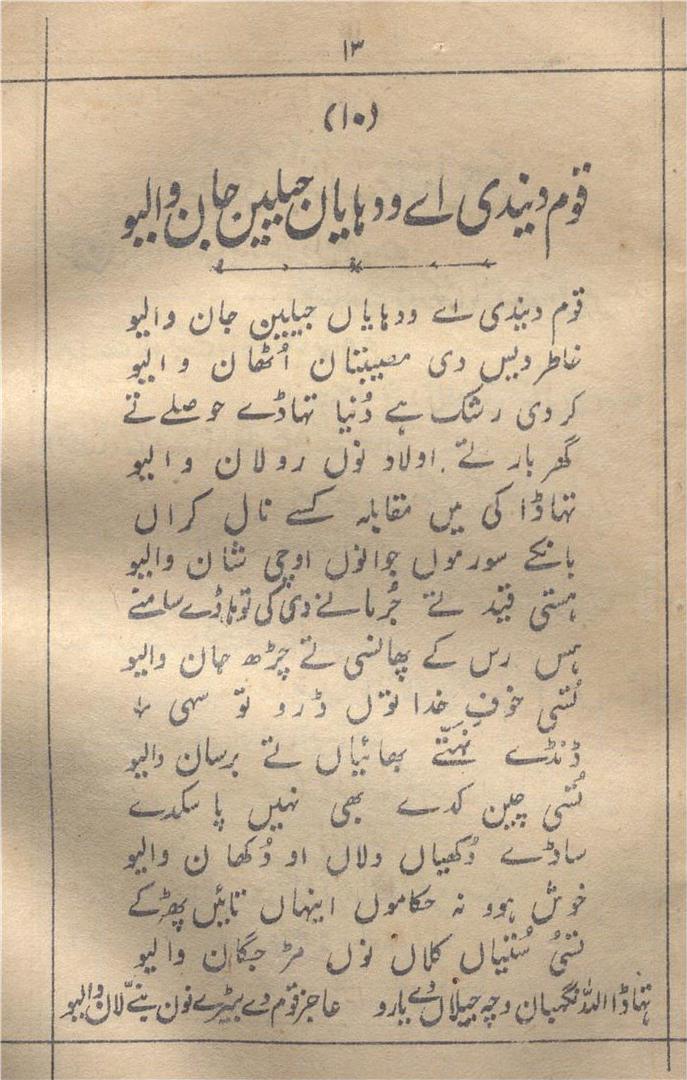 ۱۳
(۱۰)
قوم دیندی اے ودہایاں جیلیں جان والیو
قوم دیندی اے ودہایاں جیلیں جان والیو
خاطر دیس دی مصیبتان اُٹھان والیو
کر دی رشک ہے دُنیا تہاڈے حوصلے تے
گھر بار تے اولاد نوں رولان والیو
تہاڈا کی میں مقابلہ کسے نال کراں
بانکے سورموں جوانوں اوچی شان والیو
ہستی قید تے جُرمانے دی کی توہاڈے سامنے
ہس رس کے پھانسی تے چڑھ جان والیو
تُسی خوفِ خدا توں ڈرو تو سہی
ڈنڈے نہتّے بھائیاں تے برسان والیو
تُسی چین کدے بھی نہیں پا سکدے
ساڈے دُکھیاں دلاں او دُکھان والیو
خوش ہوو نہ حکاموں اینہاں تائیں پھڑکے
تسیُ سُتیاں کلاں نوں مڑ جگان والیو
تہاڈا اللہ نگہبان وچہ جیلاں دے یارو عاجز قوم دے بیڑے نون بنّے لان والیو